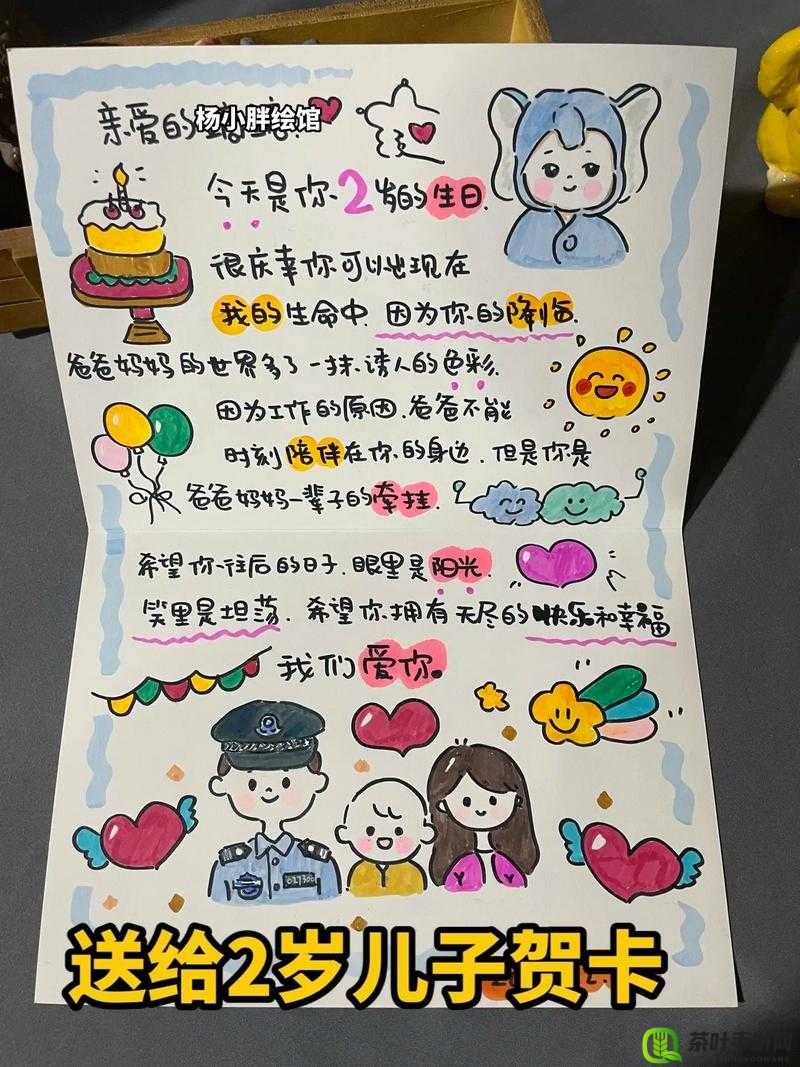 亲爱的
杨小胖绘馆
今天是你2岁的生日.
很庆幸你可以出现在
我的生命中.因为你的降临.
爸爸妈妈的世界多了一抹诱人的色彩.
因为工作的原因.爸爸不能
时刻陪伴在你的身边.但是你是
爸爸妈妈一辈子的牵挂.
希望你往后的日子.眼里是阳光.
笑里是坦荡.希望你拥有无尽的快乐和幸福
我们爱你。
027306
送给2岁儿子贺卡